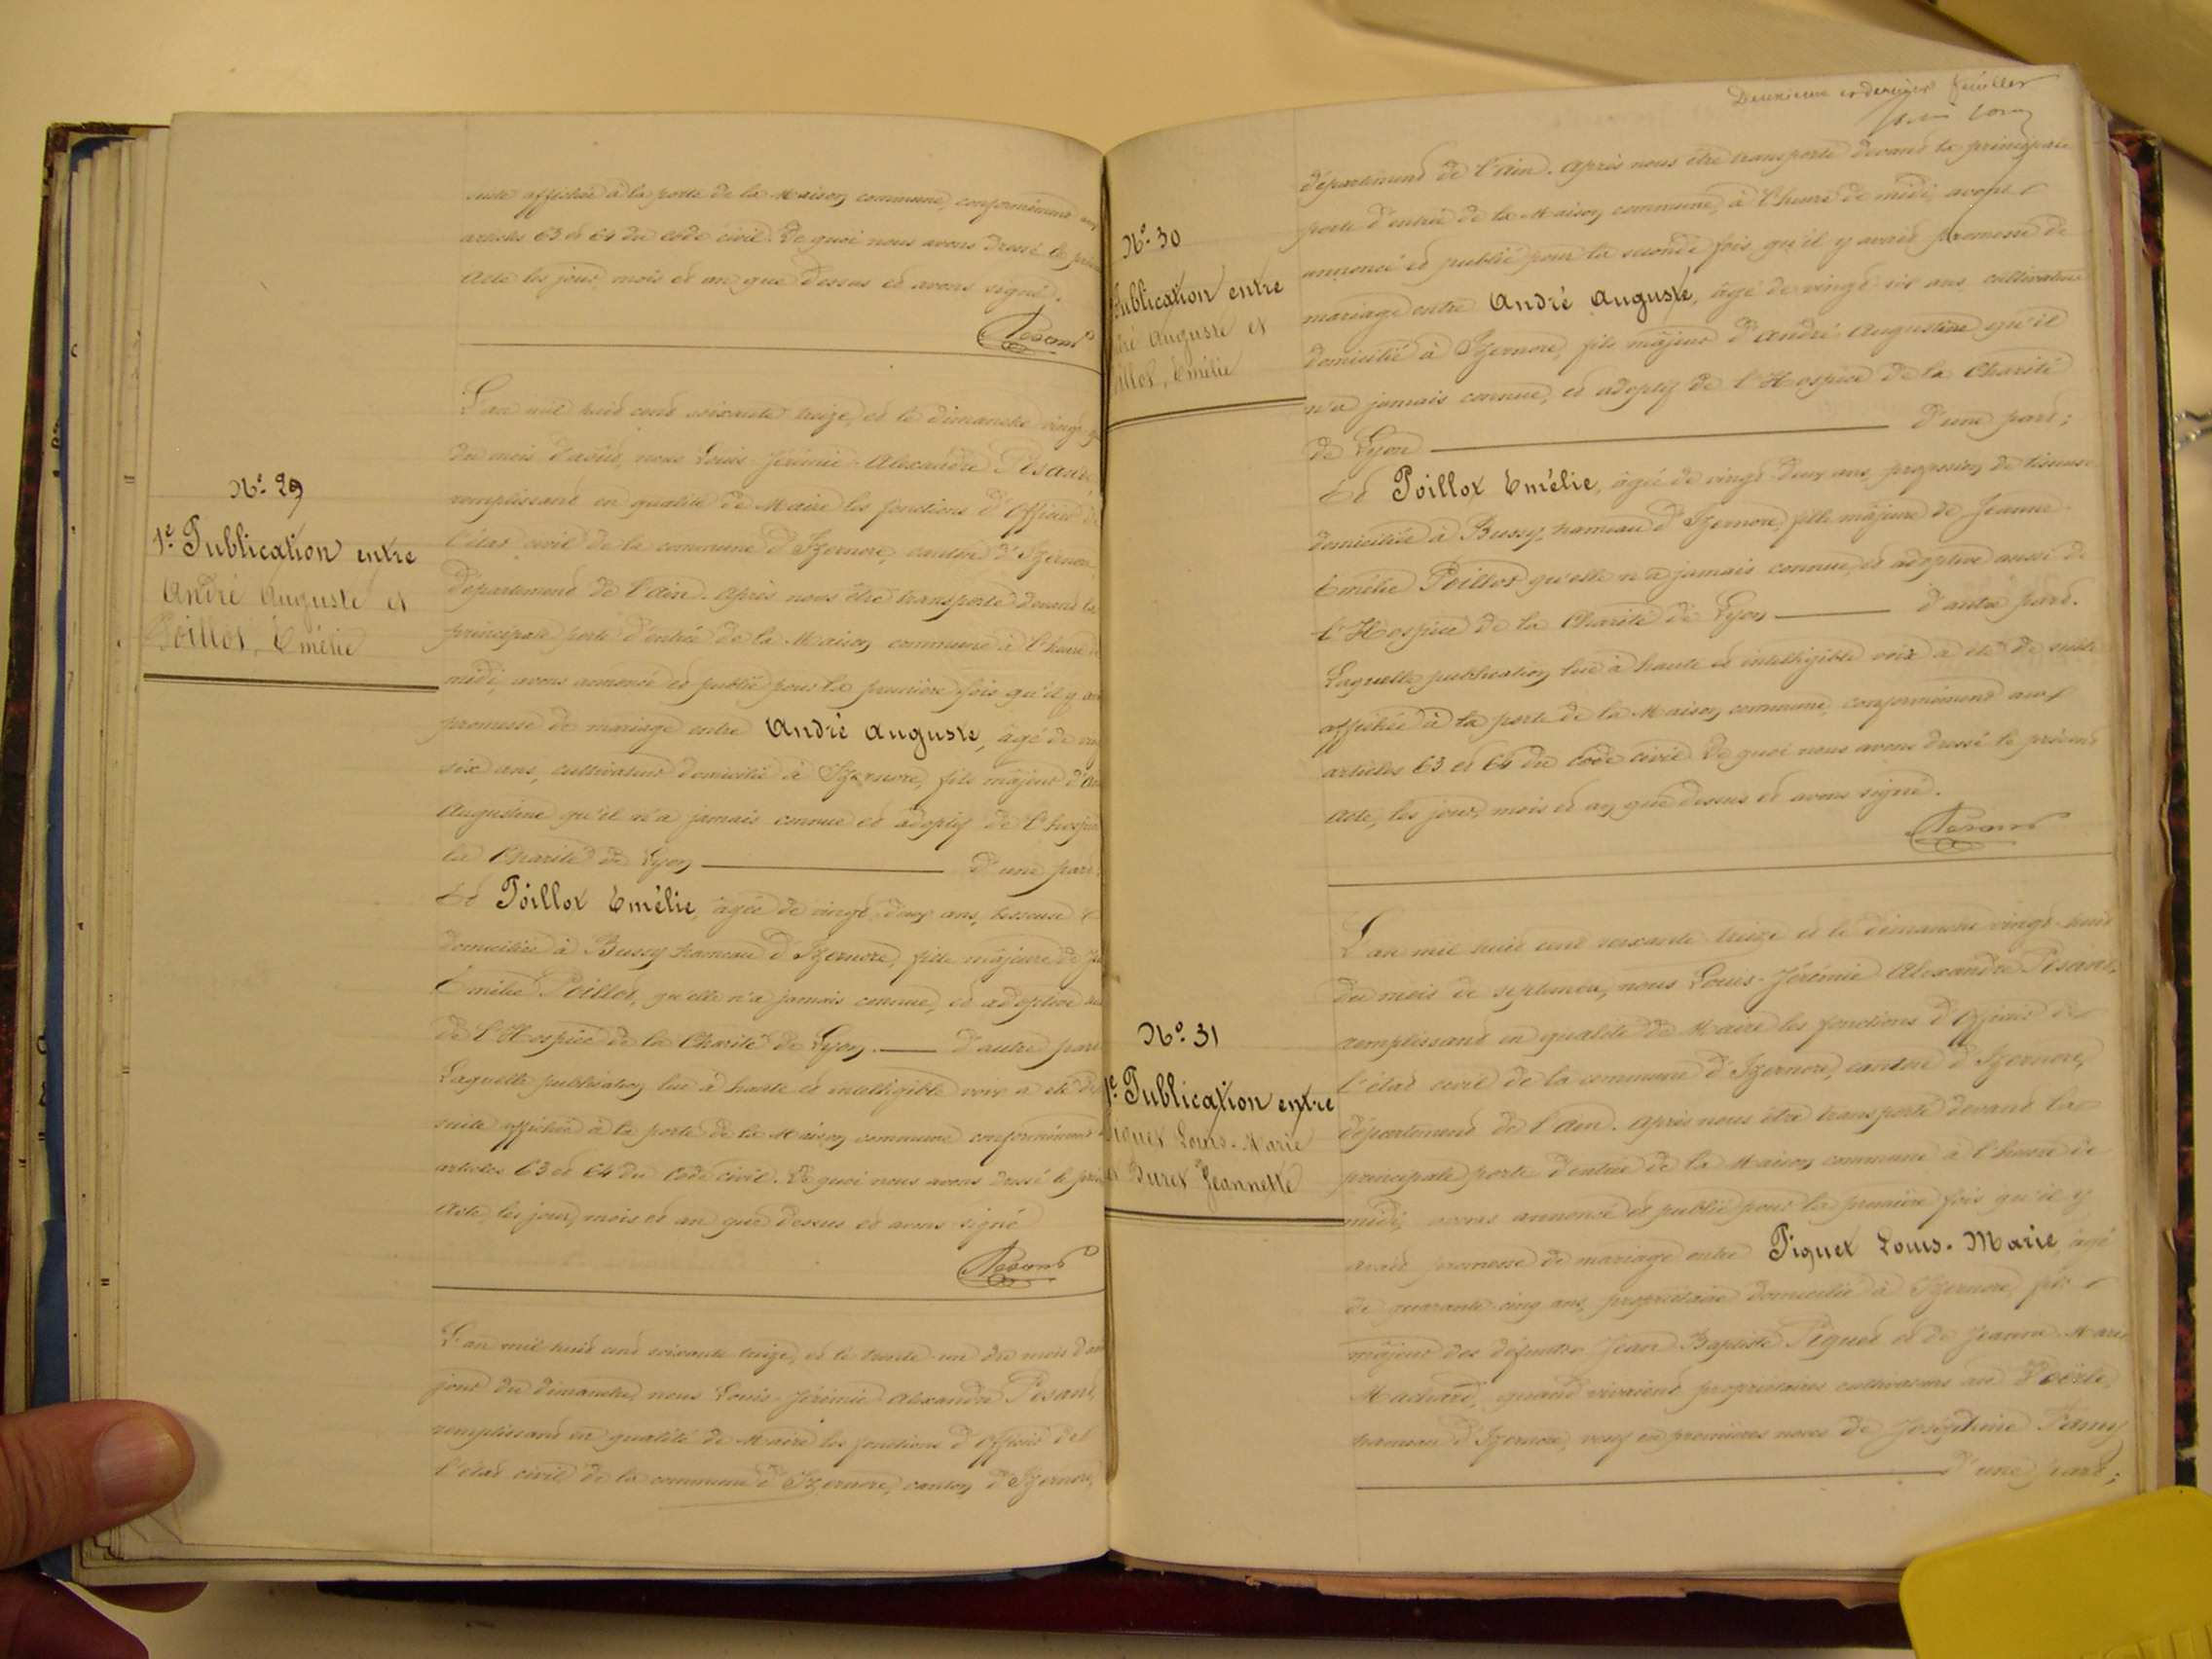 suite affichée à la porte de la Maison commune, conformément aux
articles 63 et 64 du code civil. De quoi nous avons dressé le
acte les jour, mois et an que dessus et avons signé.
Pesant
N° 29
1e Publication entre
André Auguste et
Poillot, Emélie
L'an mil huit cent soixante treize, et le dimanche vingt
du mois d'août, nous Louis-Jérémie-Alexandre Pesant,
remplissant en qualité de Maire les fonctions d'Officier de
l'état civil de la commune d'Izernore, canton d'Izernore,
département de l'Ain. Après nous être transporté devant la
principale porte d'entrée de la Maison commune à l'heure de
midi, avons annoncé et publié pour la première fois qu'il y
promesse de mariage entre André Auguste, âgé de
six ans, cultivateur domicilié à Izernore, fils majeur
Augustine qu'il n'a jamais connue et adoptif de
la Charité de Lyon d'une part;
Et Poillot Emélie, âgée de vingt-deux ans,
domiciliée à Bussy hameau d'Izernore, fille majeure de
Emélie Poillot, qu'elle n'a jamais connue, et adoptive
de l'Hospice de la Charité de Lyon. d'autre part
Laquelle publication lue à haute et intelligible voix a été de
suite affichée à la porte de la Maison commune conformément
articles 63 et 64 du Code civil. De quoi nous avons dressé le
Acte, les jour, mois et an que dessus et avons signé
Pesant
L'an mil huit cent soixante treize, et le trente-un du mois
jour du dimanche, nous Louis-Jérémie Alexandre Pesant,
remplissant en qualité de Maire les fonctions d'Officier de
l'état civil de la commune d'Izernore, canton d'Izernore,
Deuxième et dernier feuillet
N° 30
Publication entre
Auguste et
Emélie
département de l'Ain. Après nous être transporté devant la principale
porte d'entrée de la Maison commune, à l'heure de midi, avons
annoncé et publié pour la seconde fois qu'il y avait promesse de
mariage entre André Auguste, âgé de vingt-six ans, cultivateur
domicilié à Izernore, fils majeur d'André Augustine qu'il
n'a jamais connue, et adoptif de l'Hospice de la Charité
de Lyon d'une part;
Et Poillot Emélie, âgée de vingt-deux ans, profession de tisseuse
domiciliée à Bussy, hameau d'Izernore, fille majeure de Jeanne
Emélie Poillot qu'elle n'a jamais connue, et adoptive aussi de
l'Hospice de la Charité de Lyon d'autre part.
Laquelle publication lue à haute et intelligible voix a été de suite
affichée à la porte de la Maison commune, conformément aux
articles 63 et 64 du Code civil. De quoi nous avons dressé le présent
acte, les jour, mois et an que dessus et avons signé.
Pesant
N° 31
1e Publication entre
Piquet Louis-Marie
et Buret Jeannette
L'an mil huit cent soixante treize et le dimanche vingt-huit
du mois de septembre, nous Louis-Jérémie Alexandre Pesant,
remplissant en qualité de Maire les fonctions d'Officier de
l'état civil de la commune d'Izernore, canton d'Izernore,
département de l'Ain. Après nous être transporté devant la
principale porte d'entrée de la Maison commune à l'heure de
midi, avons annoncé et publié pour la première fois qu'il y
avait promesse de mariage entre Piquet Louis-Marie, âgé
de quarante-cinq ans, propriétaire domicilié à Izernore, fils
majeur des défunts Jean Baptiste Piquet et de Jeanne Marie
Machard, quand vivaient propriétaires cultivateurs au
hameau d'Izernore, veuf en premières noces de Joséphine
d'une part;